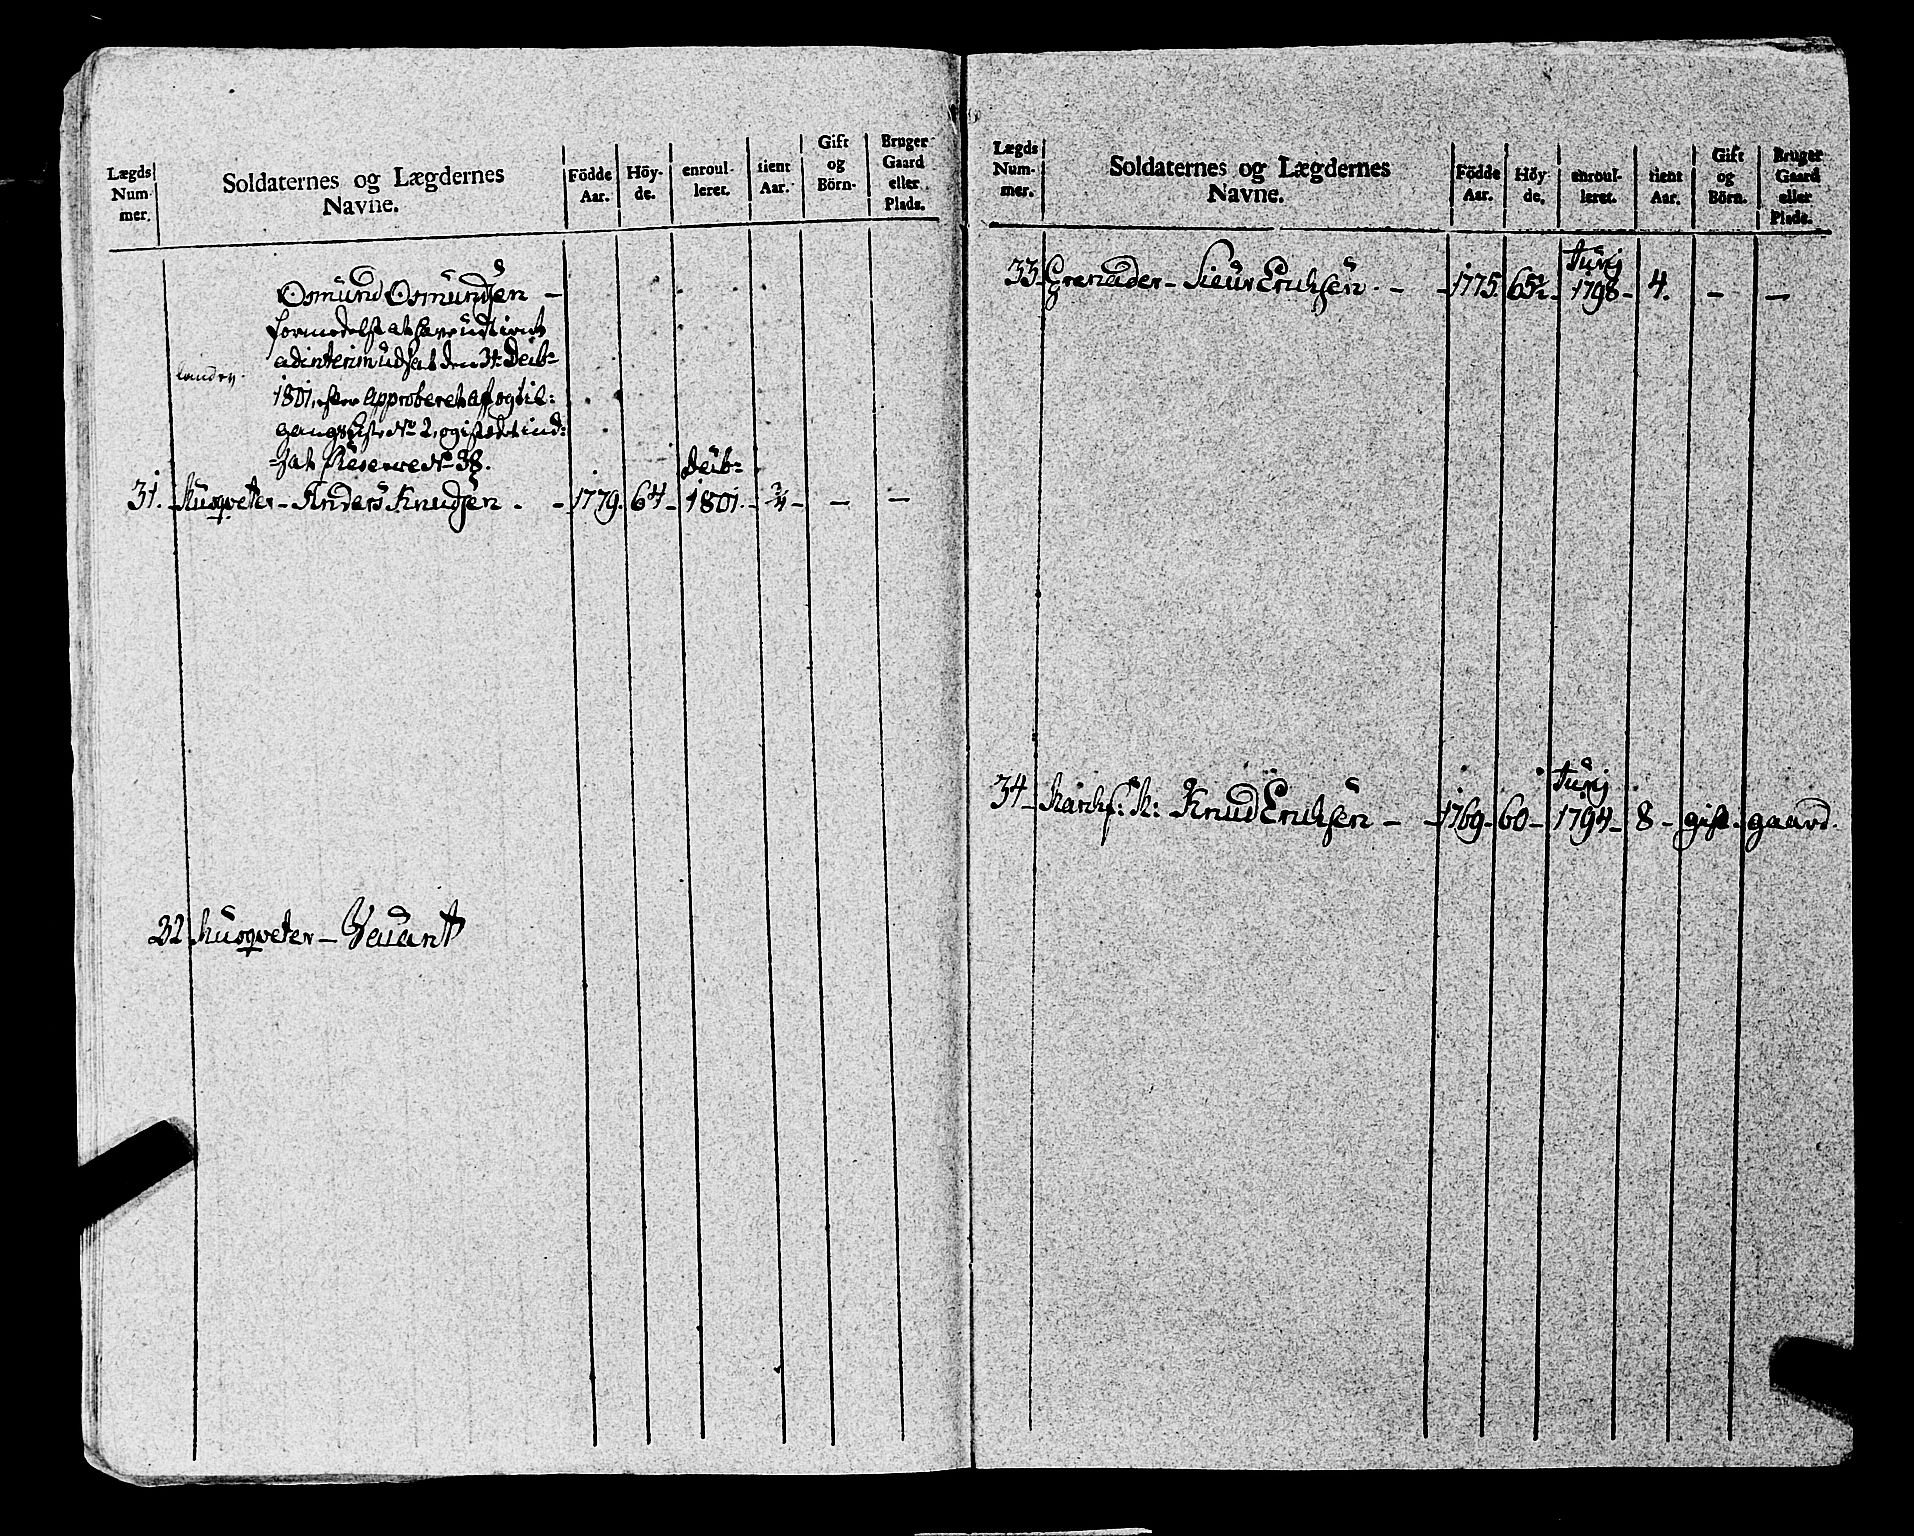 Lægds Num- mer. Soldaternes og Lægdernes Navne. Födde Aar. Höy- de. enroul- leret. tient Aar. Gift og Börn. Bruger Gaard eller Plads.
Osmund Osmundsen –
formedelst at have udtient
ad interim udsat den 31 Decb:
1801, efter Approberet Af og til-
gangs Liste No 2, og istedet ind-
sat Reserve No 38.
31. Musqveter – Anders Knudsen – 1779. 64 – Decb: 1801. – – –
32 Musqveter – Vacant
Lægds Num- mer. Soldaternes og Lægdernes Navne. Födde Aar. Höy- de. enroul- leret. tient Aar. Gift og Börn. Bruger Gaard eller Plads.
33 Grenader – Siur Erichsen – 1775. 65½ – Junj 1798 – 4. – –
34 – Knud Erichsen – 1769 – 60 – Junj 1794 – 8 – gift – gaard.